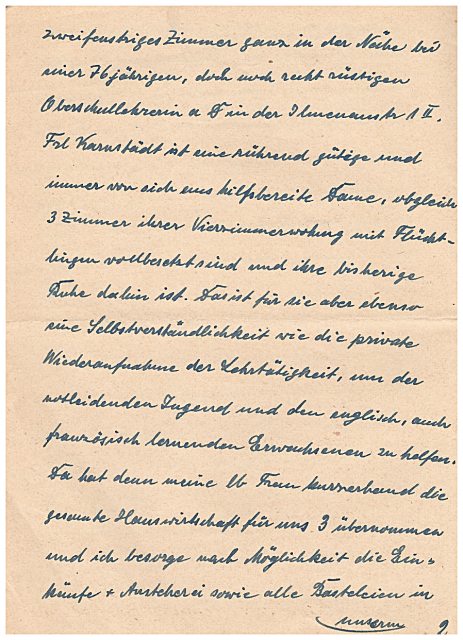 zweifenstriges Zimmer ganz in der Nähe bei
einer 76jährigen, doch noch recht rüstigen
Oberschullehrerin a D in der Ilmenaustr 1 II.
Frl Karnstädt ist eine rührend gütige und
immer von sich aus hilfsbereite Dame, obgleich
3 Zimmer ihrer Vierzimmerwohung mit Flücht-
lingen vollbesetzt sind und ihre bisherige
Ruhe dahin ist. Das ist für sie aber ebenso
eine Selbstverständlichkeit wie die private
Wiederaufnahme der Lehrtätigkeit, um der
notleidenden Jugend und den englisch, auch
französisch lernenden Erwachsenen zu helfen.
Da hat denn meine lb Frau kurzerhand die
gesamte Hauswirtschaft für uns 3 übernommen
und ich besorge nach Möglichkeit die Ein-
käufe + Ansteherei sowie alle Basteleien in
unserm